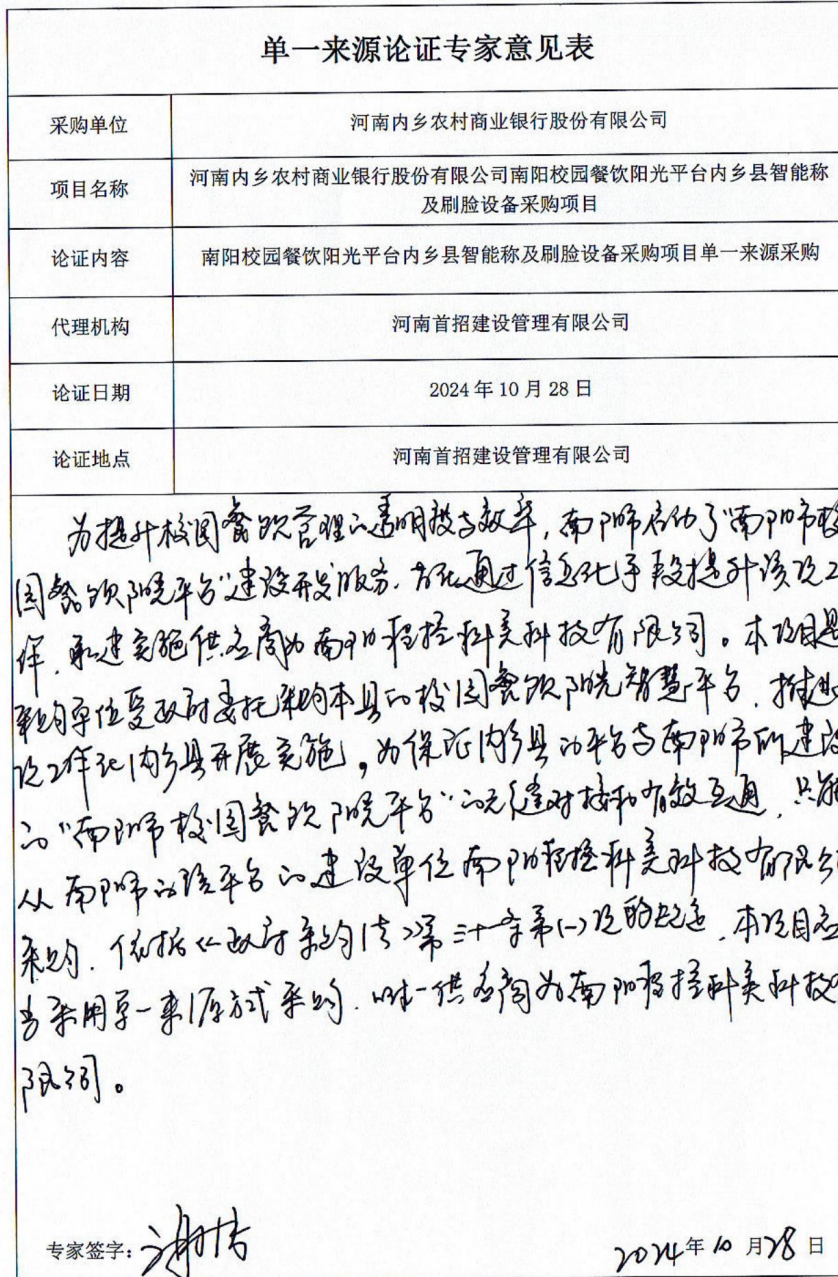 单一来源论证专家意见表
采购单位
河南内乡农村商业银行股份有限公司
项目名称
河南内乡农村商业银行股份有限公司南阳校园餐饮阳光平台内乡县智能称
及刷脸设备采购项目
论证内容
南阳校园餐饮阳光平台内乡县智能称及刷脸设备采购项目单一来源采购
代理机构
河南首招建设管理有限公司
论证日期
2024年10月28日
论证地点
河南首招建设管理有限公司
为提升校园餐饮管理的透明度与效率，南阳市启动了“南阳市校
园餐饮阳光平台”建设开发服务，旨在通过信息化手段提升该项工
作，承建实施供应商为南阳程控科美科技有限公司。本项目是
采购单位受政府委托采购本县的校园餐饮阳光智慧平台，推进
该工作在内乡县开展实施，为保证内乡县的平台与南阳市所建设
的“南阳市校园餐饮阳光平台”的无缝对接和有效互通，只能
从南阳市的该平台的建设单位南阳程控科美科技有限公司
采购，依据《政府采购法》第三十一条第(一)项的规定，本项目应
当采用单一来源方式采购，唯一供应商为南阳程控科美科技有
限公司。
专家签字：
2024年10月28日